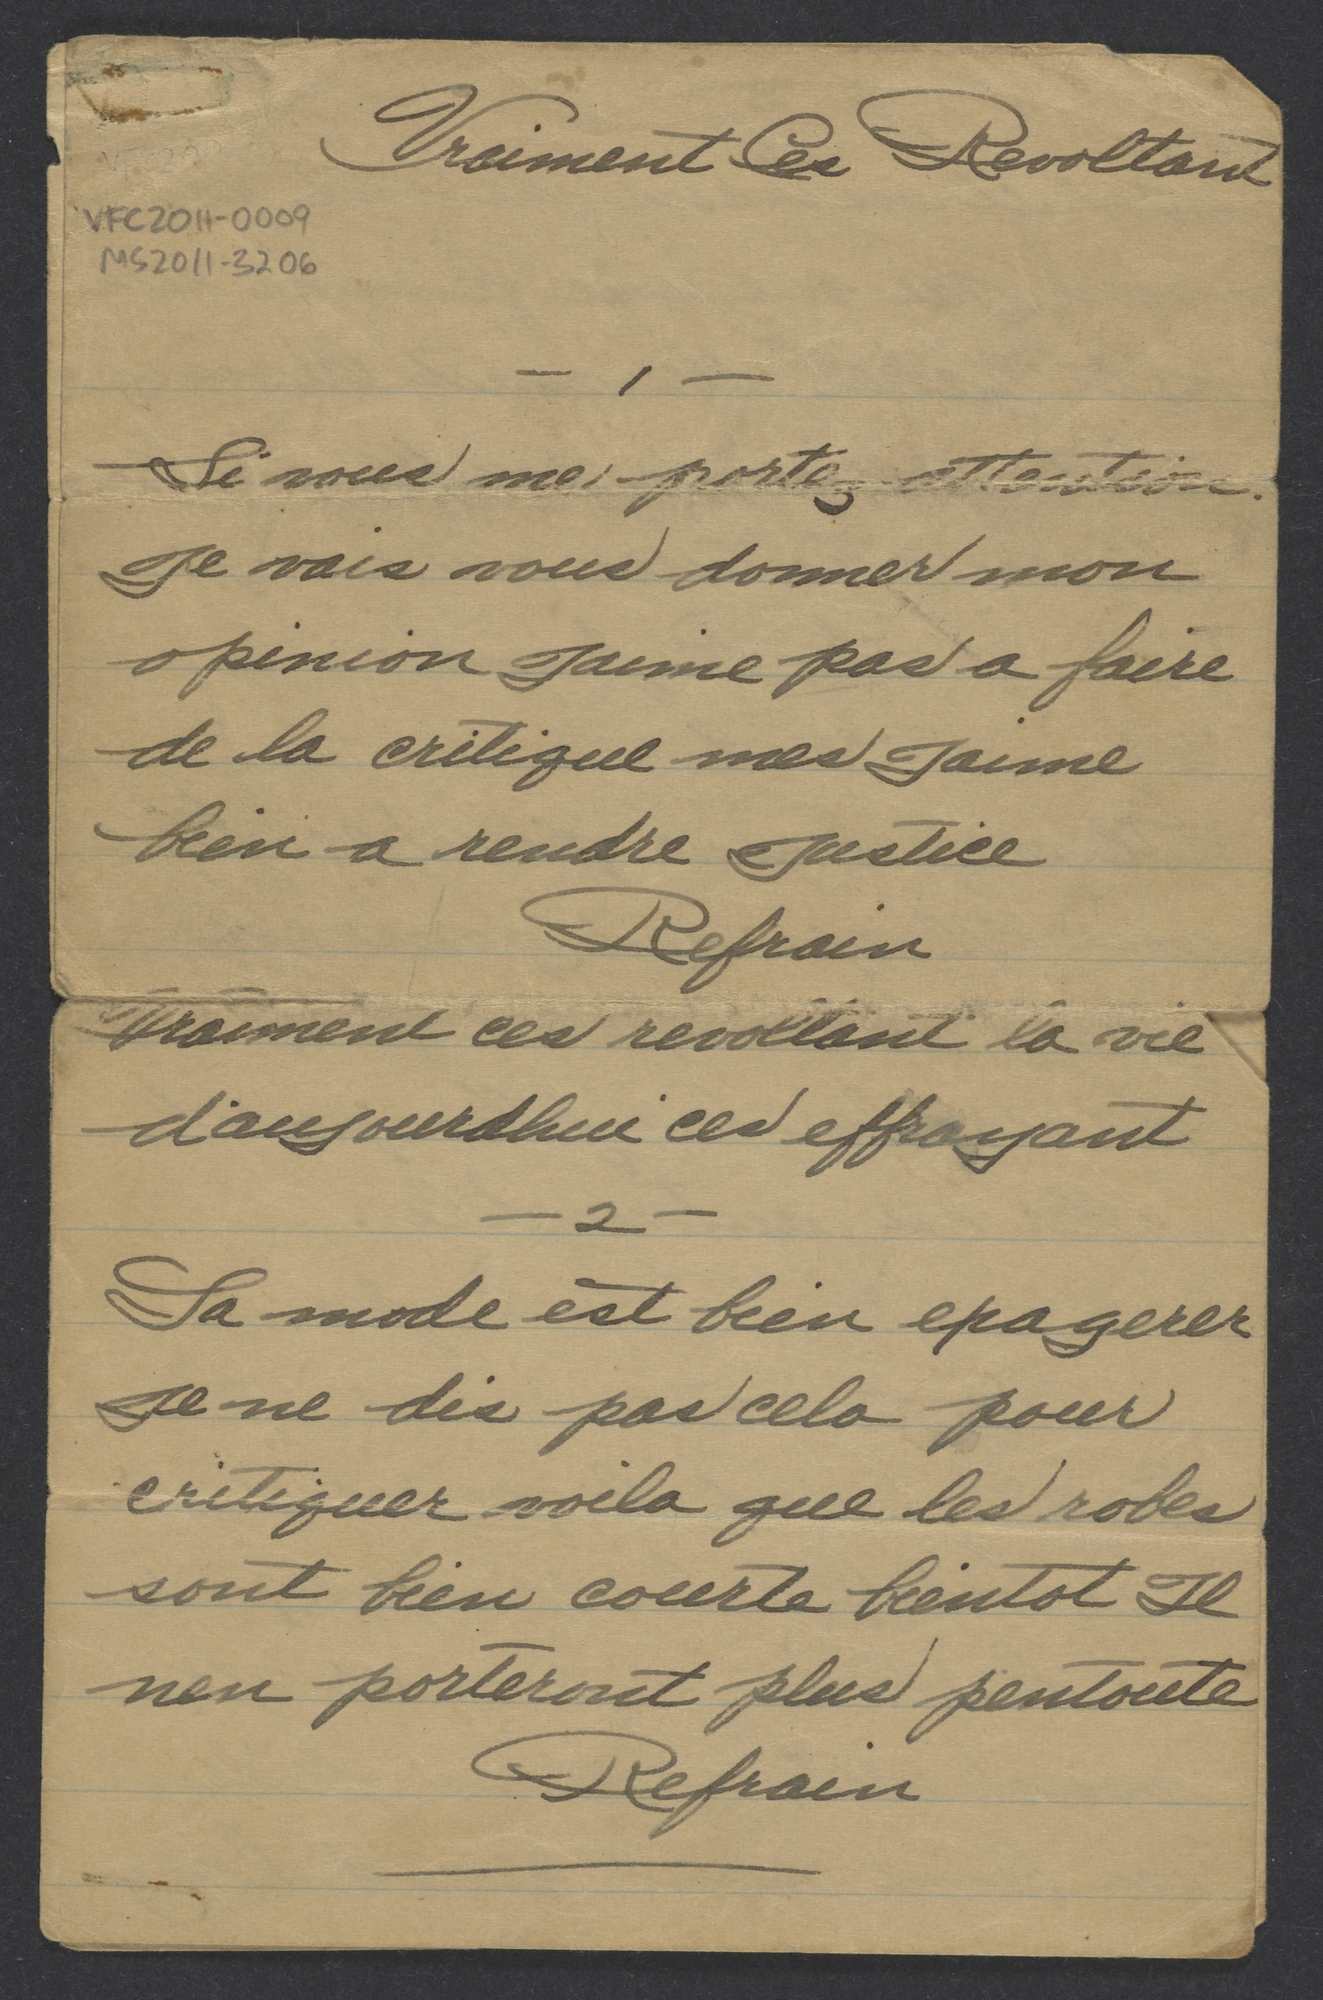 Vraiment Ces Revoltant
VFC2011-0009
MS2011-3206
— 1 —
Si vous me portez attention.
Je vais vous donner mon
opinion Jaime pas a faire
de la critique mes Jaime
bien a rendre Justice
Refrain
Vraiment ces revoltant la vie
d'aujourdhui ces effrayant
— 2 —
La mode est bien exagerer
Je ne dis pas cela pour
critiquer voila que les robes
sont bien courte bientot Il
nen porteront plus pentoute
Refrain